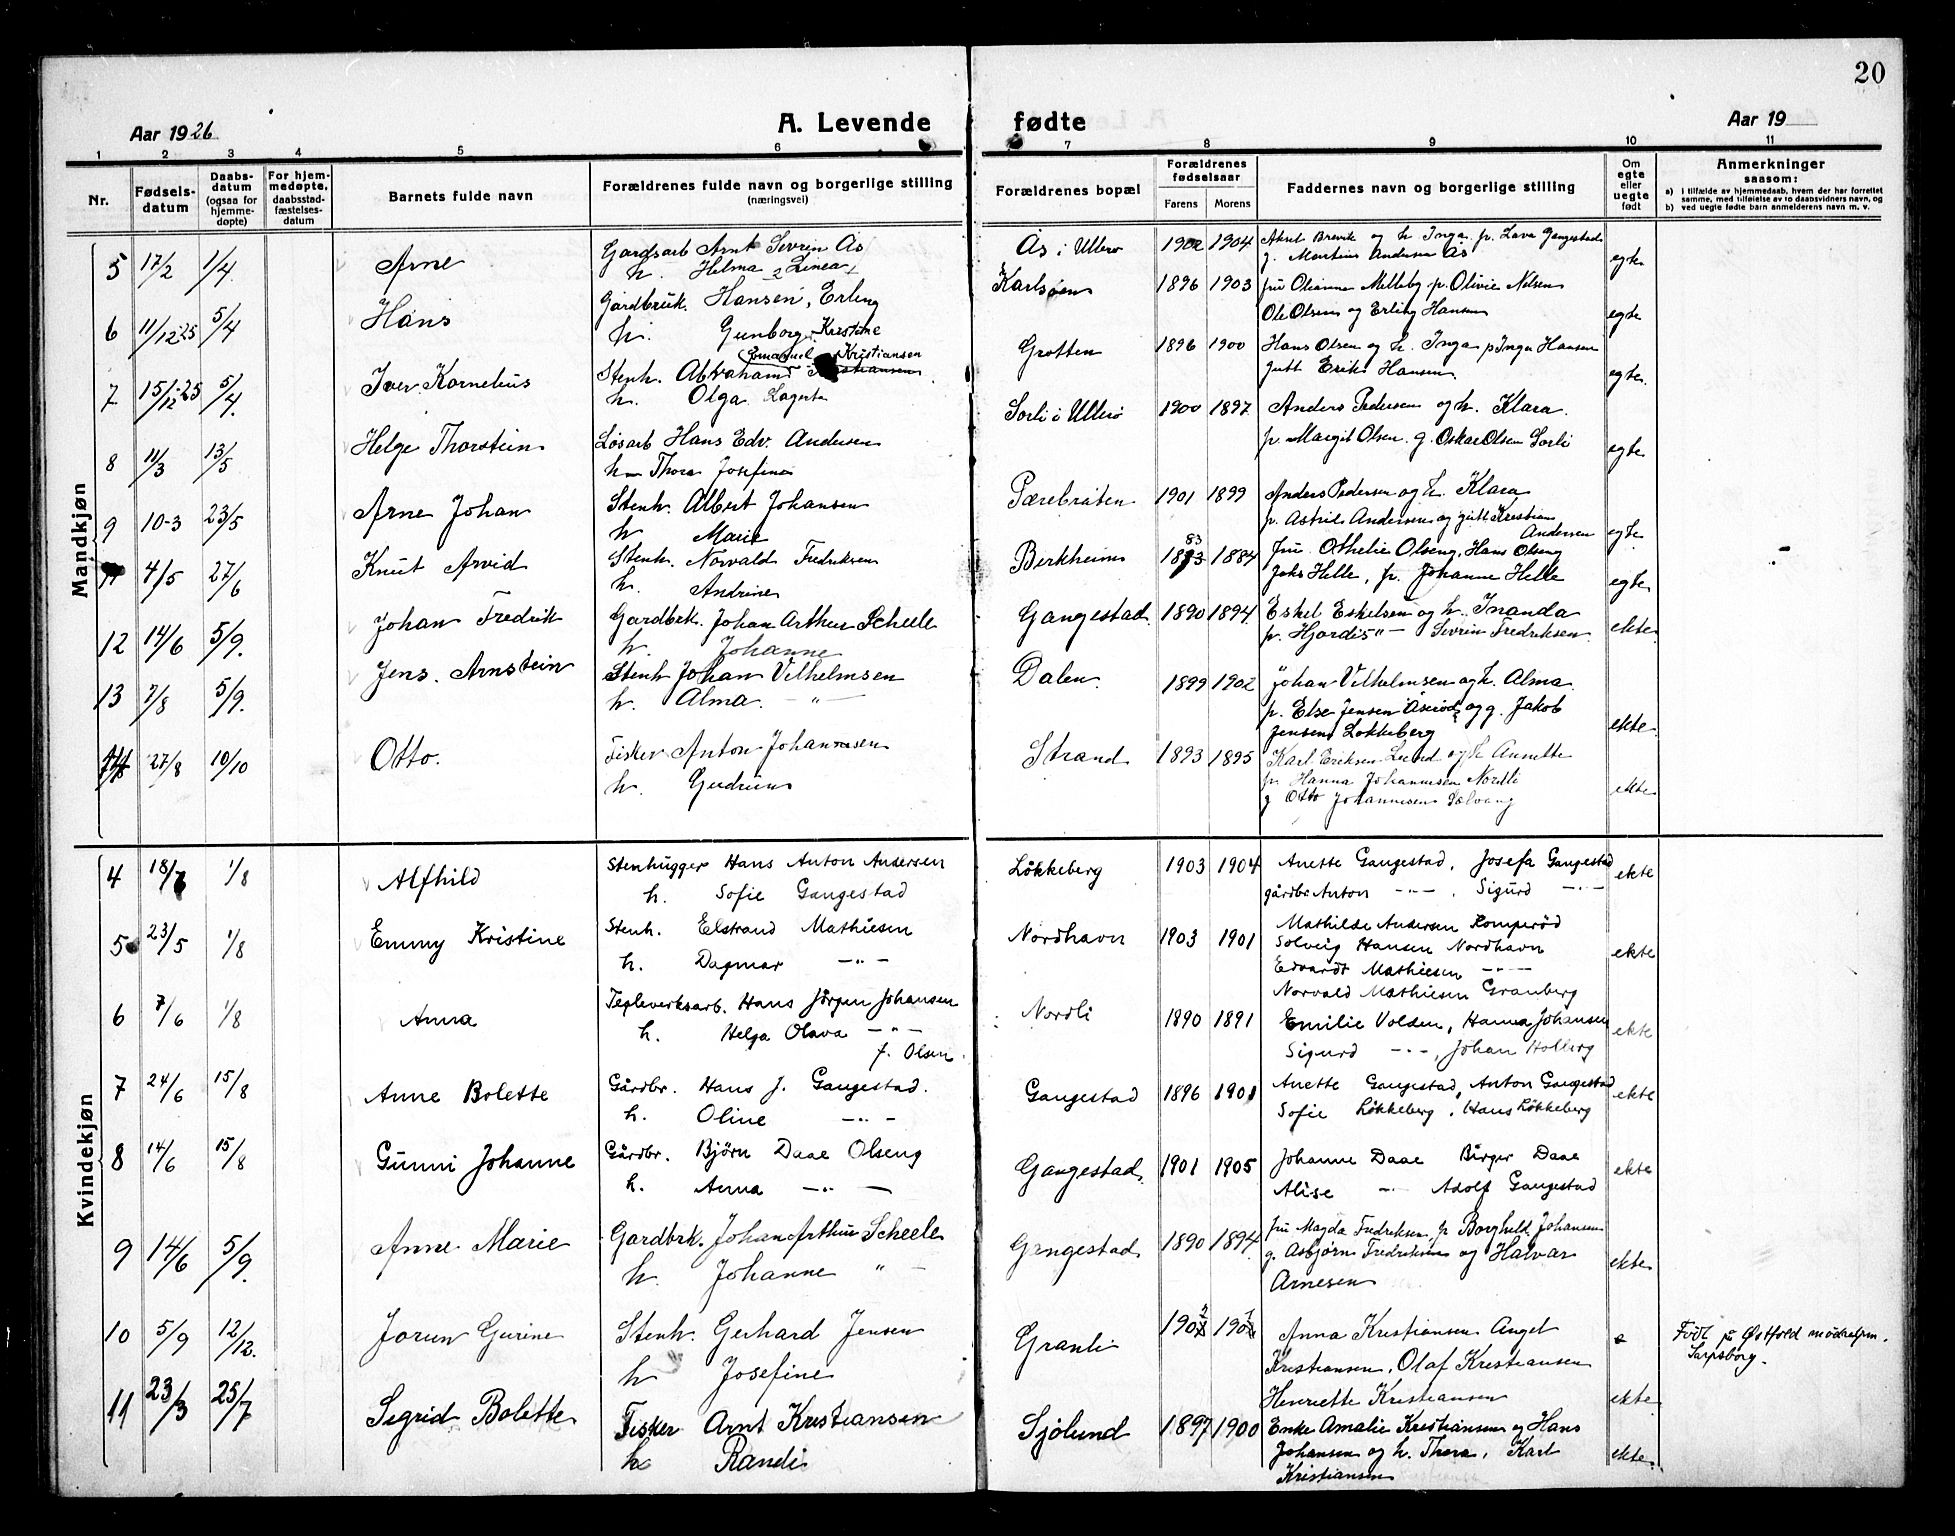 20
Aar 1926
A. Levende fødte
Aar 19
1 2 3 4 5 6 7 8 9 10 11
Nr.
Fødsels-
datum
Daabs-
datum
(ogsaa for
hjemme-
døpte)
For hjem-
medøpte,
daabsstad-
fæstelses-
datum
Barnets fulde navn
Forældrenes fulde navn og borgerlige stilling
(næringsvei)
Forældrenes bopæl
Forældrenes
fødselsaar
Farens Morens
Faddernes navn og borgerlige stilling
Om
egte
eller
uegte
født
Anmerkninger
saasom:
a) i tilfælde av hjemmedaab, hvem der har forrettet
samme, med tilføielse av to daabsvidners navn, og
b) ved uegte fødte barn anmelderens navn m. v.
Mandkjøn
5 17/2 1/4 Arne Gardsarb Arnt Sevrin Ås Ås i Ullerø 1902 1904 Aksel Brevik og h. Inga p. Lava Gangestad
h. Helma Linea g. Martin Andersen Ås egte
6 11/12-25 5/4 Hans Gårdbruk. Hansen, Erling Karlsøen 1896 1903 fru Olianna Melleby p. Olivie Nelsen
h. Gunborg Kristine Ole Olsen og Erling Hansen egte
Emanuel Kristiansen
7 15/12-25 5/4 Iver Kornelius Stenh. Abraham Kristiansen Grotten 1896 1900 Hans Olsen og h. Inga p Inga Hansen
h. Olga Lagerta gutt Erik Hansen egte
8 11/3 13/5 Helge Thorstein Løsarb Hans Edv. Andersen Sorli i Ullerø 1900 1897 Anders Pedersen og h. Klara
h Thora Josefine p. Margit Olsen. g. Oskar Olsen Sorli egte
9 10-3 23/5 Arne Johan Stenh. Albert Johansen Pærebråten 1901 1899 Anders Pedersen og h. Klara
h Marie p. Astrid Andersen og gutt Kristian
Andersen egte
4/5 27/6 Knut Arvid Stenh. Norvald Fredriksen Berkheim 1883 1884 fru Othelie Olseng, Hans Olseng
h. Andrine Johs Helle, p. Johanne Helle egte
12 14/6 5/9. Johan Fredrik Gardbrk. Johan Arthur Scheele Gangestad 1890 1894 Eskel Eskelsen og h. Inanda
h. Johanne p. Hjordis -"- Sevrin Fredriksen ekte
13 7/8 5/9. Jens Arnstein Stenh Johan Vilhelmsen Dalen 1899 1902 Johan Vilhelmsen og h. Alma
h. Alma. -"- p. Else Jensen Åserød og g. Jakob
Jensen Løkkeberg ekte
14 27/8 10/10 Otto. Fisker Anton Johannesen Strand 1893 1895 Karl Eriksen Lund og h Annette
h. Gudrun p. Hanna Johannesen Nordli
g Otto Johannesen Sølvang ekte
Kvindekjøn
4 18/7 1/8 Alfhild Stenhugger Hans Anton Andersen Løkkeberg 1903 1904 Anette Gangestad, Josefa Gangestad
h. Sofie Gangestad gårdbr Anton -"-, Sigurd -"- ekte
5 23/5 1/8 Emmy Kristine Stenh. Elstrand Mathiesen Nordhavn 1903 1901 Mathilde Andersen Komperød
h. Dagmar -"- Solveig Hansen Nordhavn
Edvardt Mathiesen -"-
Norvald Mathiesen Granberg ekte
6 7/6 1/8 Anna Teglverksarb. Hans Jørgen Johansen Nordli 1890 1891 Emilie Volden, Hanna Johansen
h. Helga Olava -"- Sigurd -"-, Johan Holberg ekte
f. Olsen
7 24/6 15/8 Anne Bolette Gårdbr. Hans J. Gangestad. Gangestad 1896 1901 Anette Gangestad, Anton Gangestad
h. Oline -"- Sofie Løkkeberg, Hans Løkkeberg ekte
8 14/6 15/8 Gunni Johanne Gårdbr. Bjørn Daae Olseng Gangestad 1901 1905 Johanne Daae Birger Daae
h. Anna -"- Alise -"- Adolf Gangestad ekte
9 14/6 5/9. Anne Marie Gardbrk. Johan Arthur Scheele Gangestad 1890 1894 fru Magda Fredriksen p Borghild Johansen
h. Johanne " - g. Asbjørn Fredriksen og Halvar
Arnesen ekte
10 5/9 12/12. Jorun Gurine Stenh. Gerhard Jensen Granli Anna Kristiansen Angel e Født på Østfold mødrehjem.
h Josefine Kristiansen, Olaf Kristiansen Sarpsborg.
Henriette Kristiansen ekte
11 23/3 25/7 Sigrid Bolette Fisker Arnt Kristiansen Sjølund 1897 1900 Enke Amalie Kristiansen og Hans
h Randi Johansen og h. Thora, Karl
Kristiansen ekte